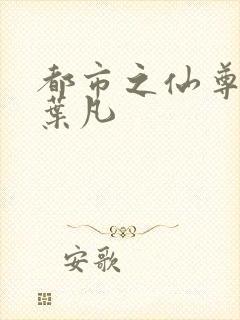 都市之仙尊
葉凡
安歌